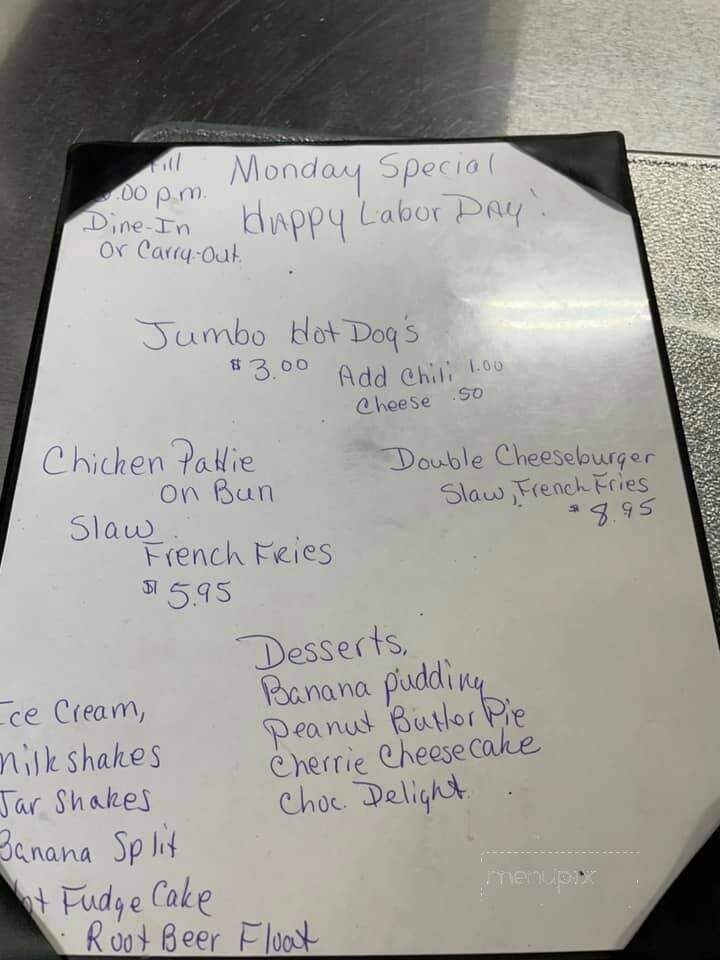 till
Monday Special
.00 p.m.
Happy Labor Day!
Dine-In
or Carry-Out.
Jumbo Hot Dog's
$3.00 Add Chili 1.00
Cheese .50
Chicken Pattie
on Bun
Slaw
French Fries
$5.95
Double Cheeseburger
Slaw, French Fries
$8.95
Desserts,
Banana pudding
Peanut Butter Pie
Cherrie Cheesecake
Choc. Delight
Ice Cream,
Milkshakes
Jar Shakes
Banana Split
Hot Fudge Cake
Root Beer Float
menupix